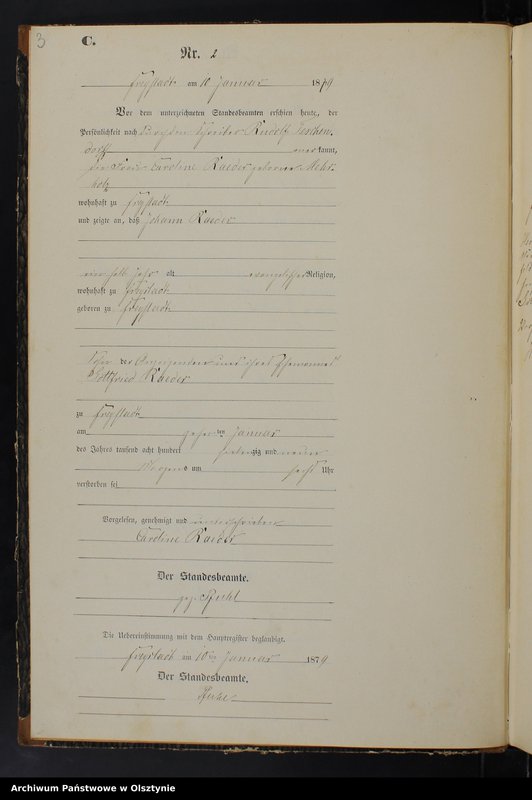 3
C.
Nr. 2
Freystadt am 10 Januar 1879
Vor dem unterzeichneten Standesbeamten erschien heute, der
Persönlichkeit nach durch den Schreiber Rudolf Teschen,
dorff anerkannt,
die Frau Caroline Raeder geborene Mehr,
holz
wohnhaft zu Freystadt
und zeigte an, daß Johann Raeder
ein halb Jahr alt evangelischer Religion,
wohnhaft zu Freystadt
geboren zu Freystadt
Sohn der Anzeigenden und ihres Ehemannes
Gottfried Raeder
zu Freystadt
am zehnten Januar
des Jahres tausend acht hundert siebenzig und neun
Morgens um sechs Uhr
verstorben sei
Vorgelesen, genehmigt und unterschrieben
Caroline Raeder
Der Standesbeamte.
gez.
Die Uebereinstimmung mit dem Hauptregister beglaubigt.
Freystadt am 10ten Januar 1879
Der Standesbeamte.
Archiwum Państwowe w Olsztynie